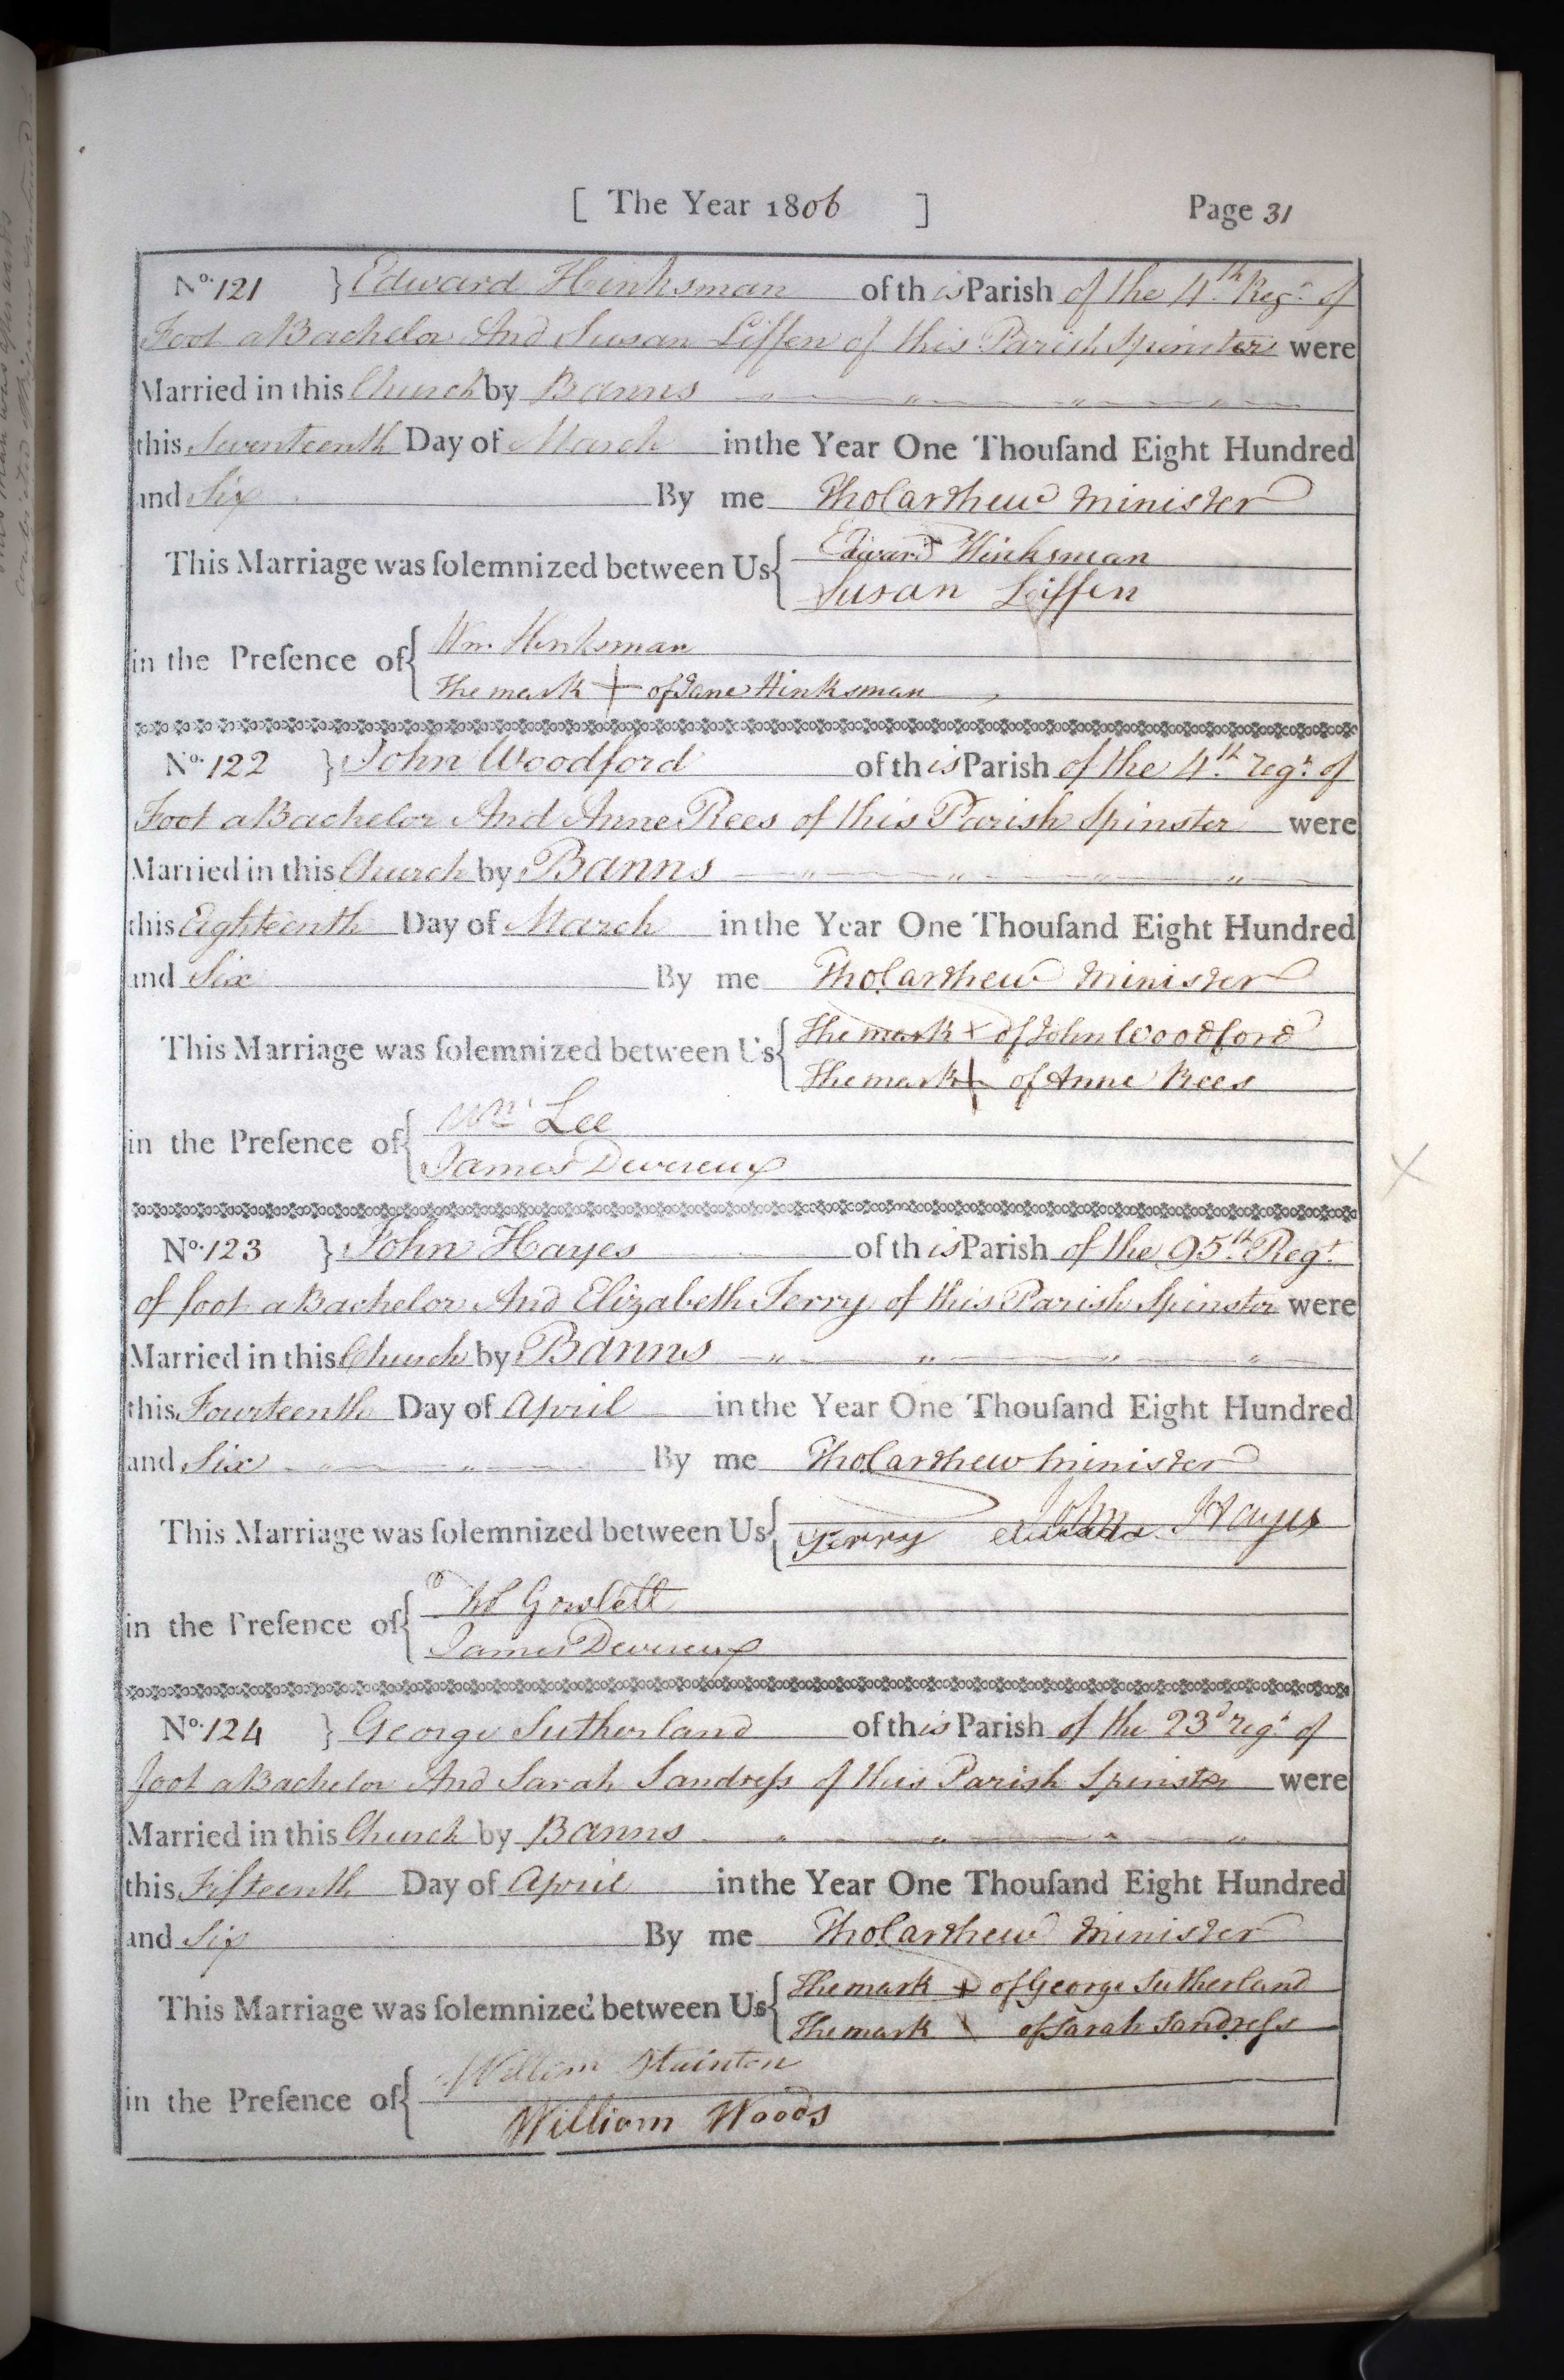 [ The Year 1806 ] Page 31
No. 121 } Edward Hinksman of this Parish of the 4th Regt. of
Foot a Bachelor And Susan Liffen of this Parish Spinster were
Married in this Church by Banns
this Seventeenth Day of March in the Year One Thouſand Eight Hundred
and Six By me Tho Carthew Minister
This Marriage was ſolemnized between Us { Edward Hinksman
Susan Liffen
in the Preſence of { Wm. Hinksman
The mark + of Jane Hinksman
No. 122 } John Woodford of this Parish of the 4th regt. of
Foot a Bachelor And Anne Rees of this Parish Spinster were
Married in this Church by Banns
this Eighteenth Day of March in the Year One Thouſand Eight Hundred
and Six By me Tho Carthew Minister
This Marriage was ſolemnized between Us { The mark x of John Woodford
The mark + of Anne Rees
in the Preſence of { Wm Lee
James Devereux
No. 123 } John Hayes of this Parish of the 95th Regt.
of foot a Bachelor And Elizabeth Terry of this Parish Spinster were
Married in this Church by Banns
this Fourteenth Day of April in the Year One Thouſand Eight Hundred
and Six By me Tho Carthew Minister
This Marriage was ſolemnized between Us { John Hayes
Terry
in the Preſence of { Gowlett
James Devereux
No. 124 } George Sutherland of this Parish of the 23d regt. of
foot a Bachelor And Sarah Sandreſs of this Parish Spinster were
Married in this Church by Banns
this Fifteenth Day of April in the Year One Thouſand Eight Hundred
and Six By me Tho Carthew Minister
This Marriage was ſolemnized between Us { The mark + of George Sutherland
The mark \ of Sarah Sandreſs
in the Preſence of { William Stainton
William Woods